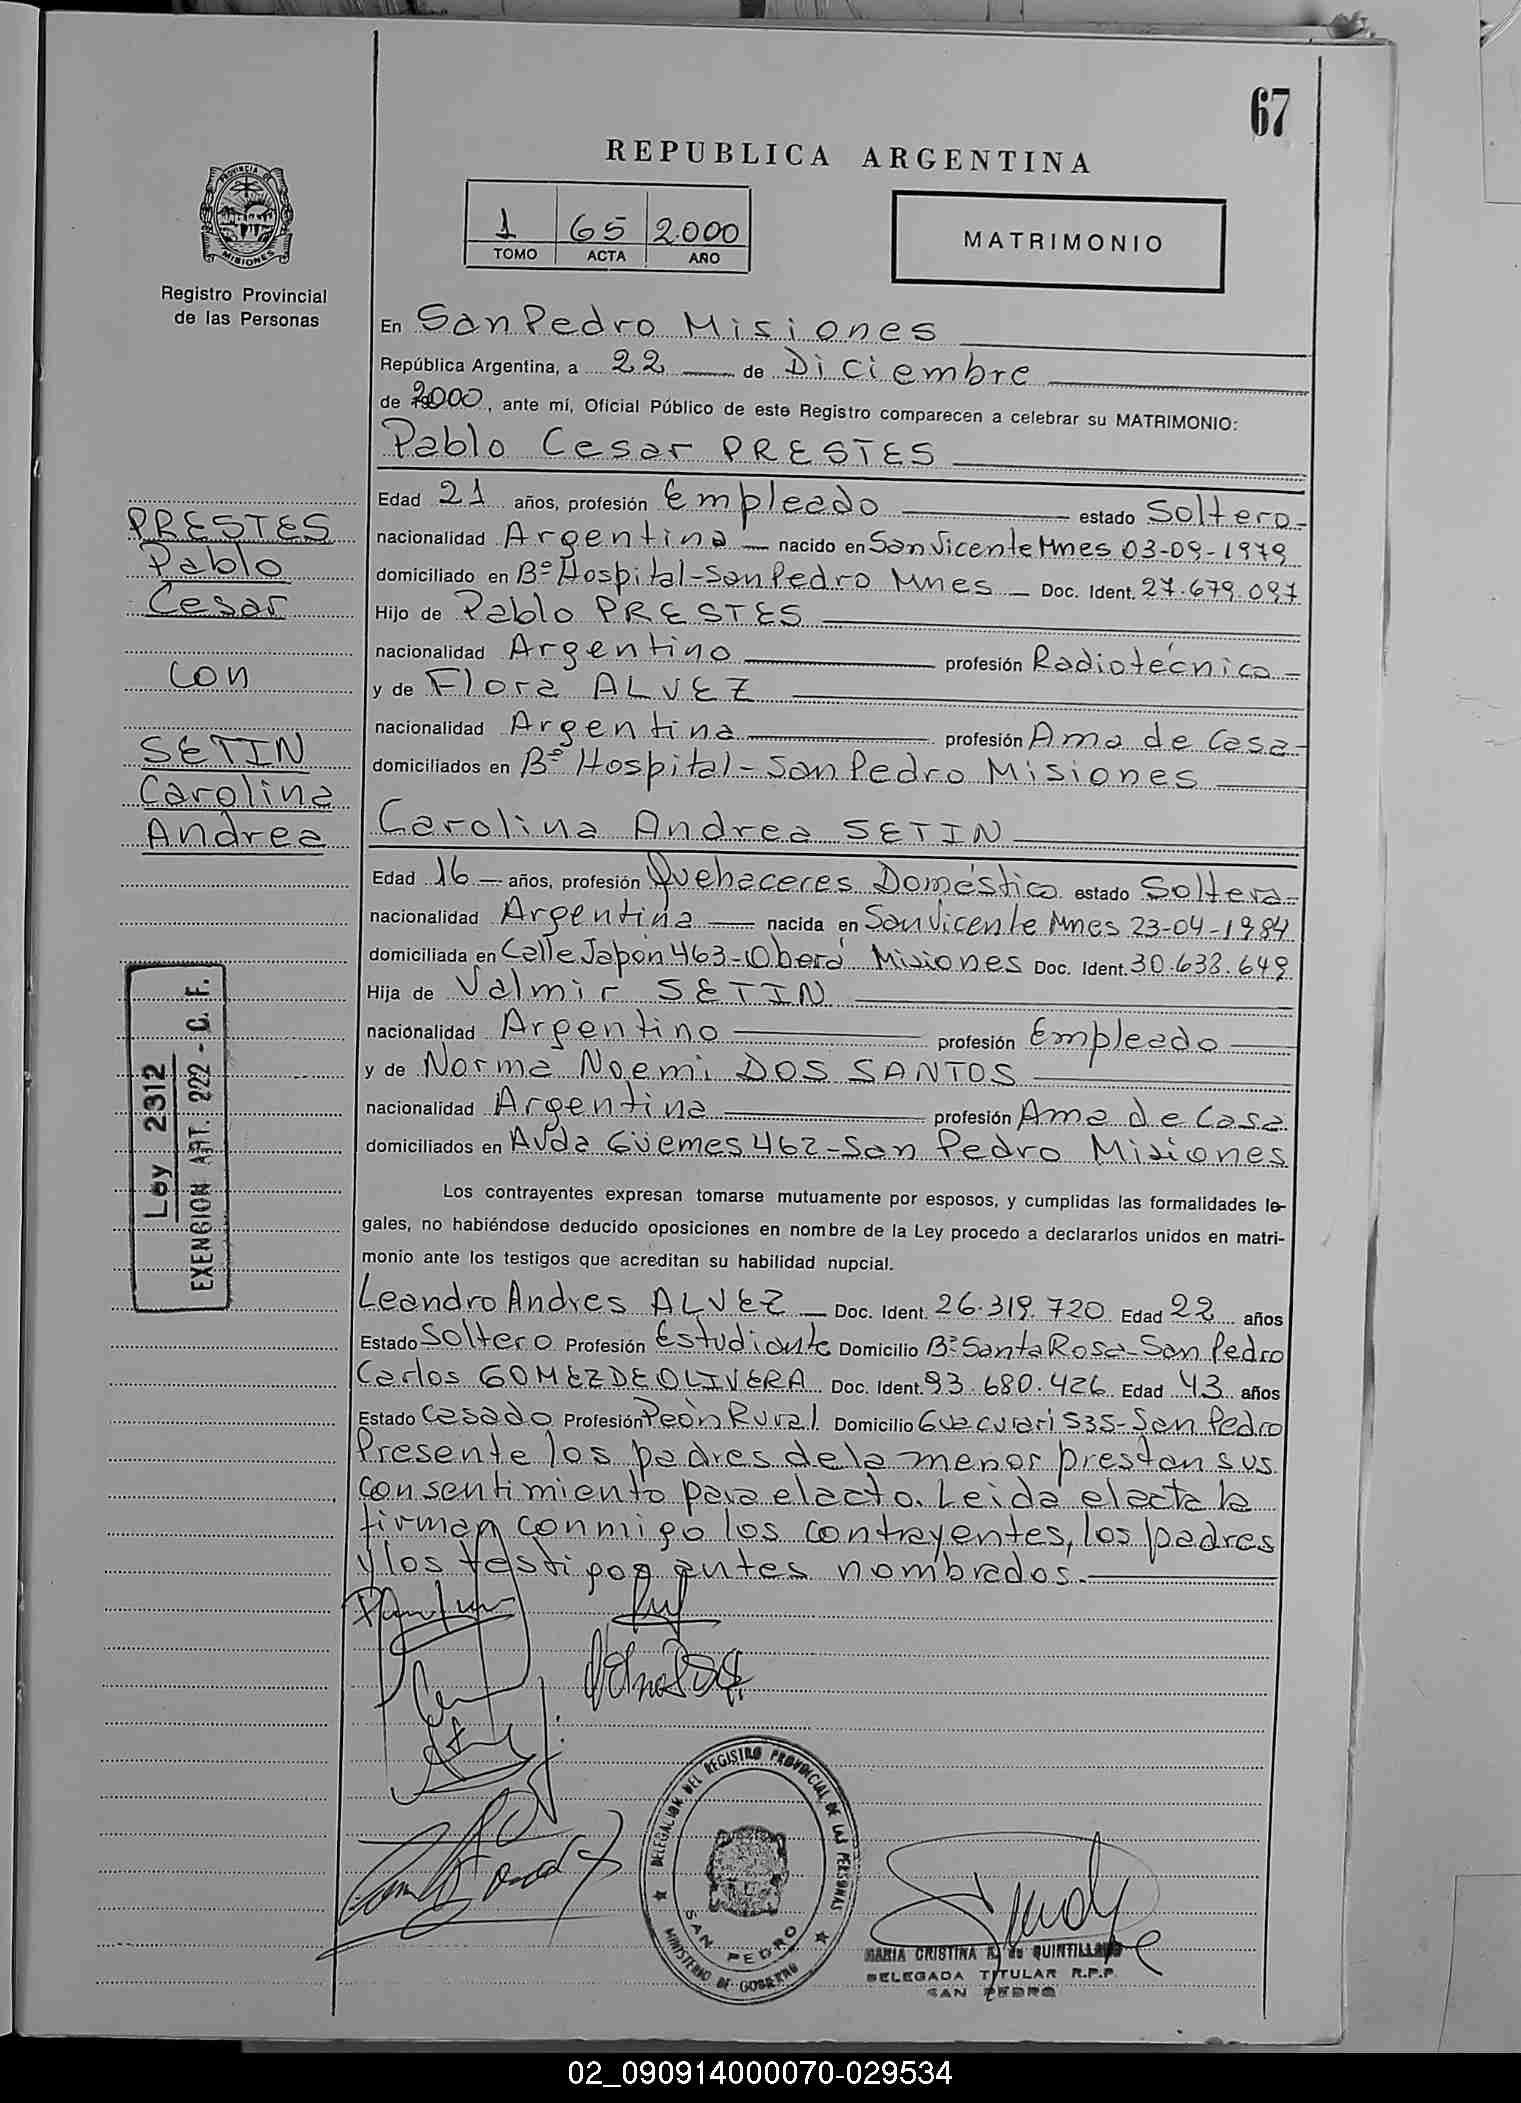 67
REPUBLICA ARGENTINA
PROVINCIA DE
MISIONES
Registro Provincial
de las Personas
1 65 2.000
TOMO ACTA AÑO
MATRIMONIO
En San Pedro Misiones
República Argentina, a 22 de Diciembre
de 2000, ante mí, Oficial Público de este Registro comparecen a celebrar su MATRIMONIO:
Pablo Cesar PRESTES
PRESTES
Pablo
Cesar
con
SETIN
Carolina
Andrea
Edad 21 años, profesión Empleado estado Soltero
nacionalidad Argentina nacido en San Vicente Mnes 03-09-1979
domiciliado en Bº Hospital-San Pedro Mnes Doc. Ident. 27.679.097
Hijo de Pablo PRESTES
nacionalidad Argentino profesión Radiotécnico
y de Flora ALVEZ
nacionalidad Argentina profesión Ama de Casa
domiciliados en Bº Hospital-San Pedro Misiones
Carolina Andrea SETIN
Edad 16 años, profesión Quehaceres Doméstico estado Soltera
nacionalidad Argentina nacida en San Vicente Mnes 23-04-1984
domiciliada en Calle Japón 463-Oberá Misiones Doc. Ident. 30.633.649
Hija de Valmir SETIN
nacionalidad Argentino profesión Empleado
y de Norma Noemi DOS SANTOS
nacionalidad Argentina profesión Ama de Casa
domiciliados en Avda Güemes 462-San Pedro Misiones
Ley 2312
EXENCION ART. 222 - C. F.
Los contrayentes expresan tomarse mutuamente por esposos, y cumplidas las formalidades le-
gales, no habiéndose deducido oposiciones en nombre de la Ley procedo a declararlos unidos en matri-
monio ante los testigos que acreditan su habilidad nupcial.
Leandro Andres ALVEZ Doc. Ident. 26.319.720 Edad 22 años
Estado Soltero Profesión Estudiante Domicilio Bº Santa Rosa-San Pedro
Carlos GOMEZ DE OLIVERA Doc. Ident. 93.680.426 Edad 43 años
Estado Casado Profesión Peón Rural Domicilio Guacurari 535-San Pedro
Presente los padres de la menor prestan sus
consentimiento para el acto. Leida el acta la
firman conmigo los contrayentes, los padres
y los testigos antes nombrados.
DELEGACION DEL REGISTRO PROVINCIAL DE LAS PERSONAS
SAN PEDRO
MINISTERIO DE GOBIERNO
MARIA CRISTINA R. de QUINTILLANO
DELEGADA TITULAR R.P.P.
SAN PEDRO
02_090914000070-029534